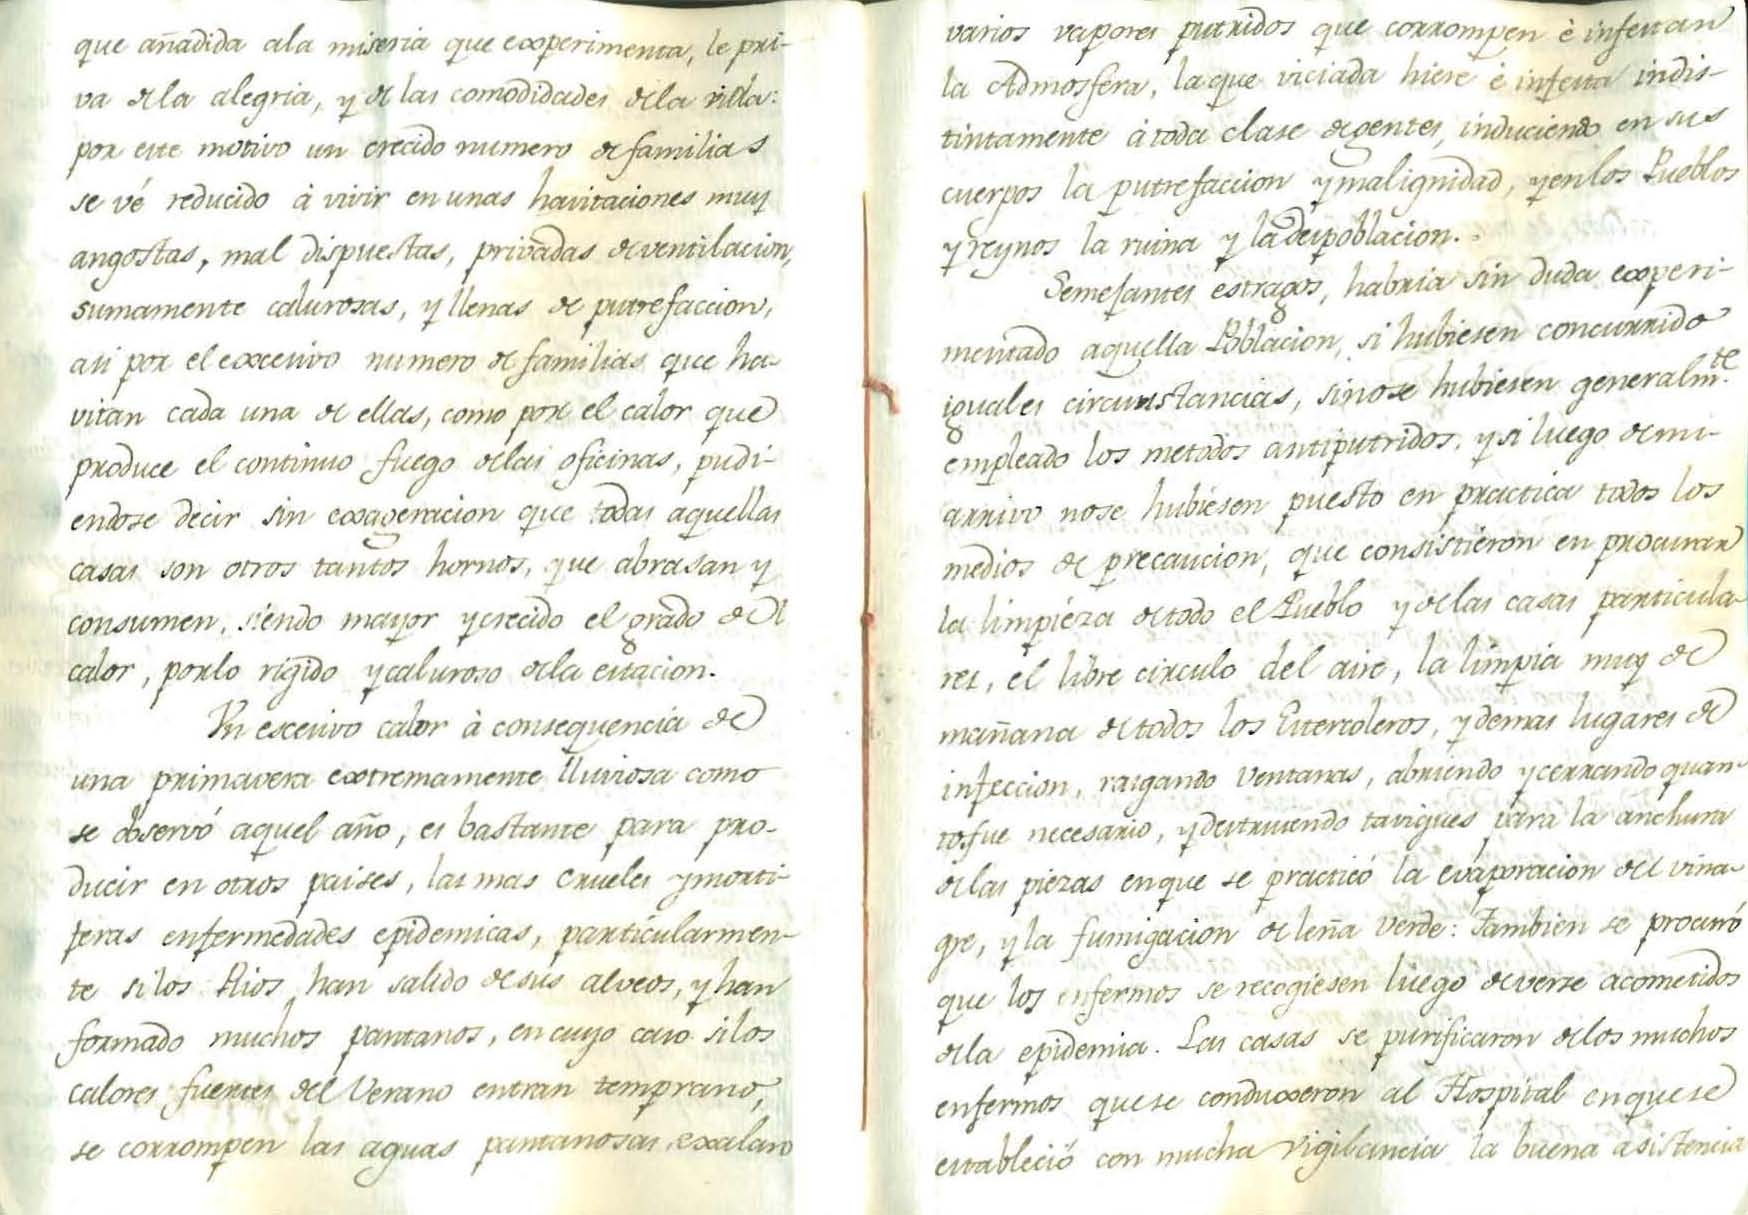 que añadida ala miseria que experimenta, le pri-
va dela alegria, y de las comodidades dela vida:
por este motivo un crecido numero de familias
se vé reducido à vivir en unas havitaciones muy
angostas, mal dispuestas, privadas de ventilacion,
sumamente calurosas, y llenas de putrefaccion,
asi por el excesivo numero de familias que ha-
vitan cada una de ellas, como por el calor que
produce el continuo fuego delas oficinas, pudi-
endose decir sin exageracion que todas aquellas
casas son otros tantos hornos, que abrasan y
consumen, siendo mayor y crecido el grado del
calor, porlo rigido y caluroso dela estacion.
Un escesivo calor à consequencia de
una primavera extremamente lluviosa como
se observó aquel año, es bastante para pro-
ducir en otros paises, las mas crueles y morti-
feras enfermedades epidemicas, particularmen-
te si los Rios han salido de sus alveos, y han
formado muchos pantanos, en cuyo caso si los
calores fuertes del Verano entran temprano,
se corrompen las aguas pantanosas, exalan
varios vapores putridos que corrompen è infestan
la Admosfera, la que viciada hiere è infesta indis-
tintamente à toda clase de gentes, induciendo en sus
cuerpos la putrefaccion y malignidad, y en los Pueblos
y reynos la ruina y la despoblacion.
Semejantes estragos, habria sin duda experi-
mentado aquella Poblacion, si hubiesen concurrido
iguales circunstancias, sino se hubiesen generalm.te
empleado los metodos antiputridos, y si luego de mi
arrivo no se hubiesen puesto en practica todos los
medios de precaucion, que consistieron en procurar
la limpieza de todo el Pueblo y delas casas particula-
res, el libre circulo del aire, la limpia muy de
mañana de todos los Estercoleros, y demas lugares de
infeccion, rasgando ventanas, abriendo y cerrando quan-
to fue necesario, y destruiendo taviques para la anchura
delas piezas en que se practicó la evaporacion del vina-
gre, y la fumigacion de leña verde: Tambien se procuró
que los enfermos se recogiesen luego de verse acometidos
dela epidemia. Las casas se purificaron delos muchos
enfermos que se conduxeron al Hospital en que se
estableció con mucha vigilancia la buena asistencia